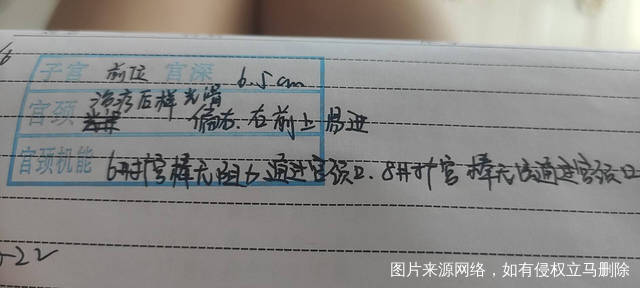 子宫 前位 宫深 6.5cm
治疗后样光滑
宫颈 偏右.右前上易进
宫颈机能 6#扩宫棒无阻力通过宫颈口.8#扩宫棒无阻通过宫颈口
-22
图片来源网络，如有侵权立马删除